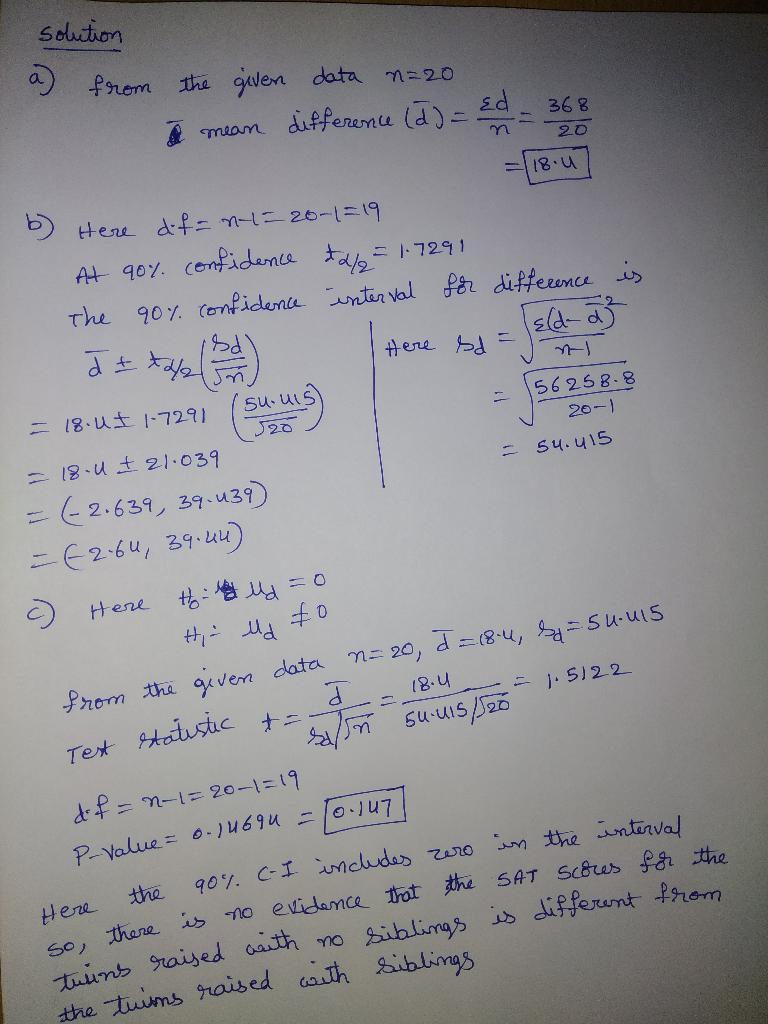 Solution
a) from the given data n=20
mean difference (d̄) = Σd/n = 368/20
= 18.4
b) Here d.f = n-1 = 20-1 = 19
At 90% confidence tα/2 = 1.7291
The 90% confidence interval for difference is
d̄ ± tα/2 (Sd/√n)
Here Sd = √(Σ(d-d̄)²/n-1)
= 18.4 ± 1.7291 (54.415/√20)
= √(56258.8/20-1)
= 18.4 ± 21.039
= 54.415
= (-2.639, 39.439)
= (-2.64, 39.44)
c) Here H₀: μd = 0
H₁: μd ≠ 0
from the given data n=20, d̄=18.4, Sd=54.415
Test statistic t = d̄/(Sd/√n) = 18.4/(54.415/√20) = 1.5122
d.f = n-1 = 20-1 = 19
P-Value = 0.14694 = 0.147
Here the 90% C-I includes zero in the interval
so, there is no evidence that the SAT Scores for the
twins raised with no siblings is different from
the twins raised with siblings